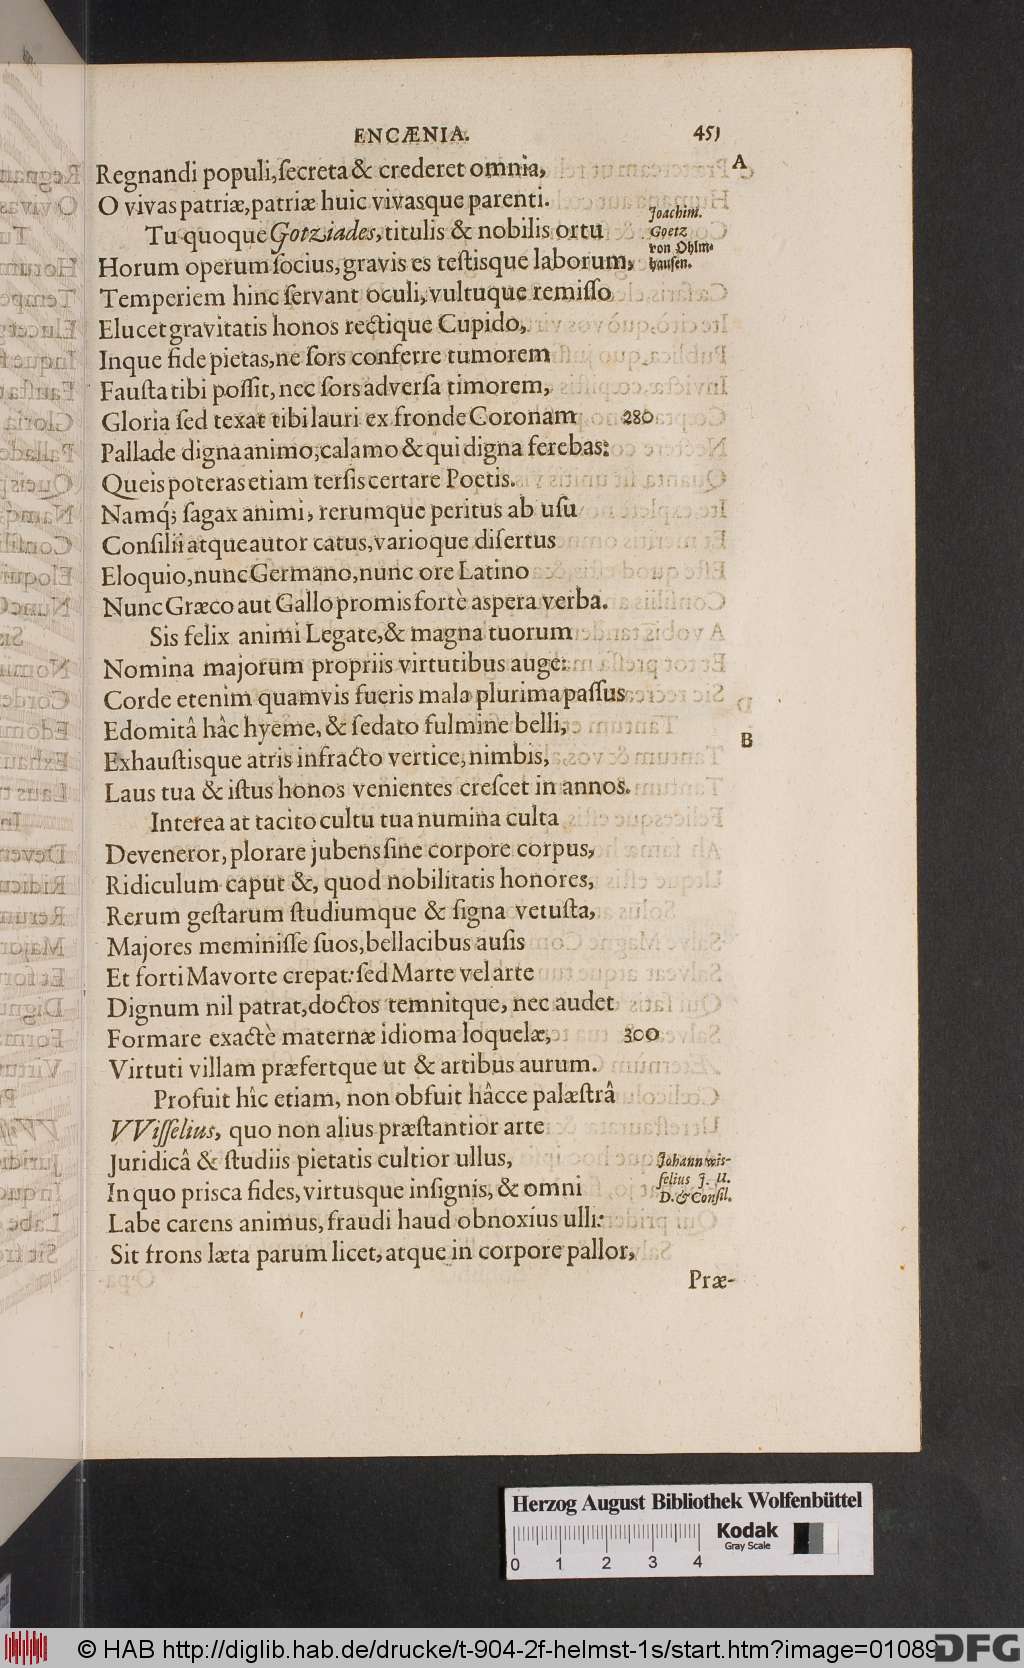 ENCÆNIA. 451
A
Regnandi populi, ſecreta & crederet omnia,
O vivas patriæ, patriæ huic vivasque parenti.
Tu quoque Gotziades, titulis & nobilis ortu
Joachim.
Goetz
von Ohlm-
hauſen.
Horum operum ſocius, gravis es teſtisque laborum,
Temperiem hinc ſervant oculi, vultuque remiſſo
Elucet gravitatis honos rectique Cupido,
Inque fide pietas, ne ſors conferre tumorem
Fauſta tibi poſſit, nec ſors adverſa timorem,
Gloria ſed texat tibi lauri ex fronde Coronam 280
Pallade digna animo, calamo & qui digna ferebas:
Queis poteras etiam terſis certare Poetis.
Namq; ſagax animi, rerumque peritus ab uſu
Conſilii atque autor catus, varioque diſertus
Eloquio, nunc Germano, nunc ore Latino
Nunc Græco aut Gallo promis fortè aspera verba.
Sis felix animi Legate, & magna tuorum
Nomina majorum propriis virtutibus auge:
Corde etenim quamvis fueris mala plurima paſſus
Edomitâ hâc hyeme, & ſedato fulmine belli,
B
Exhauſtisque atris infracto vertice, nimbis,
Laus tua & iſtus honos venientes creſcet in annos.
Interea at tacito cultu tua numina culta
Deveneror, plorare jubens ſine corpore corpus,
Ridiculum caput &, quod nobilitatis honores,
Rerum geſtarum ſtudiumque & ſigna vetuſta,
Majores meminiſſe ſuos, bellacibus auſis
Et forti Mavorte crepat: ſed Marte vel arte
Dignum nil patrat, doctos temnitque, nec audet
Formare exactè maternæ idioma loquelæ, 300
Virtuti villam præfertque ut & artibus aurum.
Profuit hîc etiam, non obfuit hâcce palæſtrâ
VViſſelius, quo non alius præſtantior arte
Juridicâ & ſtudiis pietatis cultior ullus,
Johann wiſ-
ſelius J. U.
D. & Conſil.
In quo prisca fides, virtusque inſignis, & omni
Labe carens animus, fraudi haud obnoxius ulli:
Sit frons læta parum licet, atque in corpore pallor,
Præ-
Herzog August Bibliothek Wolfenbüttel
Kodak
Gray Scale
0 1 2 3 4
© HAB http://diglib.hab.de/drucke/t-904-2f-helmst-1s/start.htm?image=01089
DFG